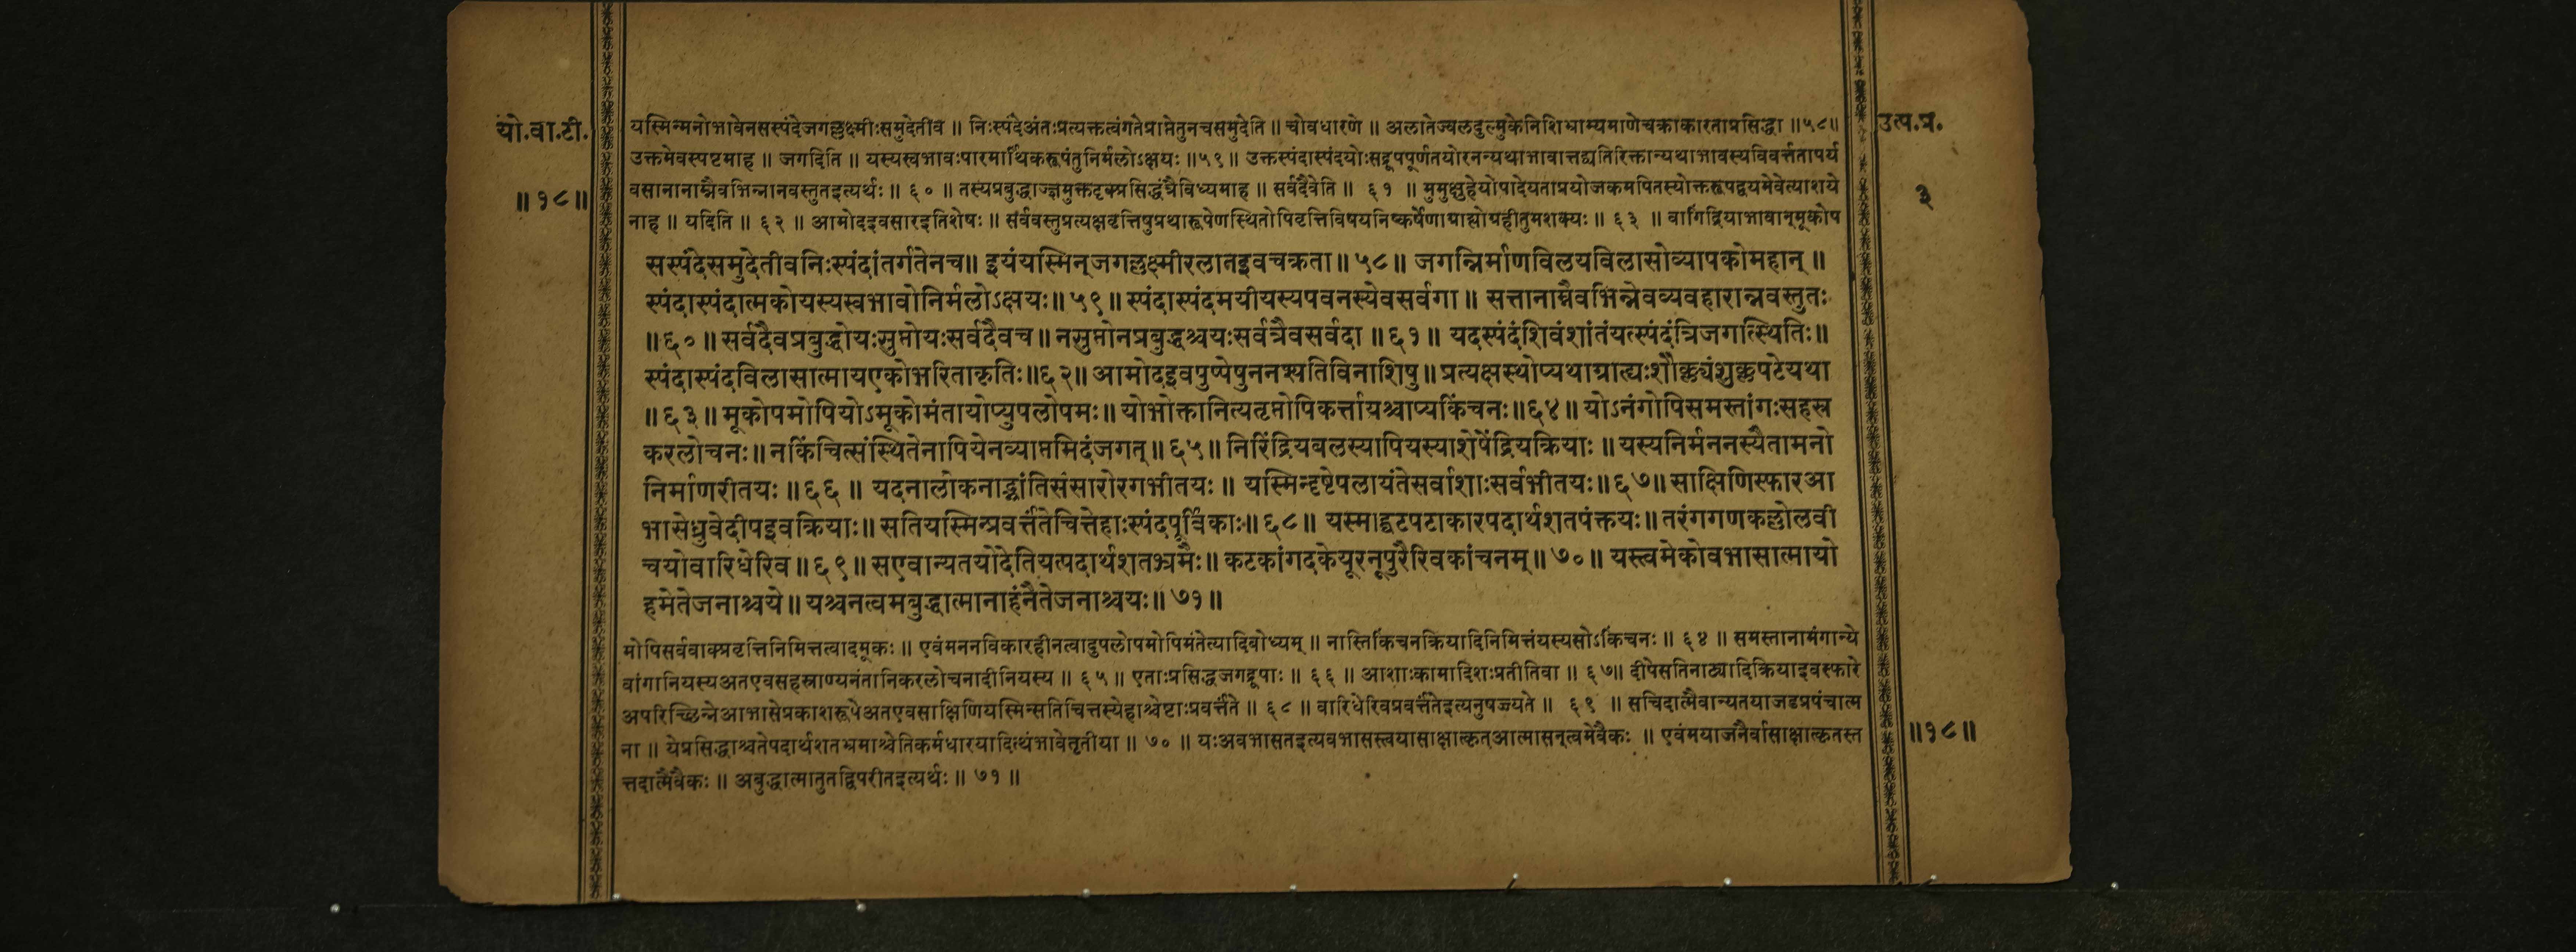 यो.वा.टी.
॥१८॥
उत्प.प्र.
३
यस्मिन्मनोभावेनसस्पंदेजगल्लक्ष्मीःसमुदेतीव ॥ निःस्पंदेअंतःप्रत्यक्तत्वंगतेप्राप्तेतुनचसमुदेति ॥ चोवधारणे ॥ अलातेज्वलदुल्मुकेनिशिभ्राम्यमाणेचक्राकारताप्रसिद्धा ॥५८॥
उक्तमेवस्पष्टमाह ॥ जगदिति ॥ यस्यस्वभावःपारमार्थिकरूपंतुनिर्मलोऽक्षयः ॥५९॥ उक्तस्पंदास्पंदयोःसद्रूपपूर्णतयोरनन्यथाभावात्तद्व्यतिरिक्तान्यथाभावस्यविवर्त्ततापर्य
वसानानाम्नैवभिन्नानवस्तुतइत्यर्थः ॥ ६० ॥ तस्यप्रबुद्धाज्ज्ञमुक्तदृक्प्रसिद्धंत्रैविध्यमाह ॥ सर्वदैवेति ॥ ६१ ॥ मुमुक्षुहेयोपादेयताप्रयोजकमपितस्योक्तरूपद्वयमेवेत्याशये
नाह ॥ यदिति ॥ ६२ ॥ आमोदइवसारइतिशेषः ॥ सर्ववस्तुप्रत्यक्षवृत्तिषुप्रथारूपेणस्थितोपिवृत्तिविषयनिष्कर्षेणाग्राह्योग्रहीतुमशक्यः ॥ ६३ ॥ वागिंद्रियाभावान्मूकोप
सस्पंदेसमुदेतीवनिःस्पंदांतर्गतेनच॥ इयंयस्मिन्जगल्लक्ष्मीरलातइवचक्रता॥५८॥ जगन्निर्माणविलयविलासोव्यापकोमहान् ॥
स्पंदास्पंदात्मकोयस्यस्वभावोनिर्मलोऽक्षयः॥५९॥ स्पंदास्पंदमयीयस्यपवनस्येवसर्वगा॥ सत्तानाम्नैवभिन्नेवव्यवहारान्नवस्तुतः
॥६०॥ सर्वदैवप्रबुद्धोयःसुप्तोयःसर्वदैवच॥ नसुप्तोनप्रबुद्धश्चयःसर्वत्रैवसर्वदा॥६१॥ यदस्पंदंशिवंशांतंयत्स्पंदंत्रिजगत्स्थितिः॥
स्पंदास्पंदविलासात्मायएकोभरिताकृतिः॥६२॥ आमोदइवपुष्पेषुननश्यतिविनाशिषु॥ प्रत्यक्षस्थोप्यथाग्राह्यःशौक्ल्यंशुक्लपटेयथा
॥६३॥ मूकोपमोपियोऽमूकोमंतायोप्युपलोपमः॥ योभोक्तानित्यतृप्तोपिकर्त्तायश्चाप्यकिंचनः॥६४॥ योऽनंगोपिसमस्तांगःसहस्र
करलोचनः॥ नकिंचित्संस्थितेनापियेनव्याप्तमिदंजगत्॥६५॥ निरिंद्रियबलस्यापियस्याशेषेंद्रियक्रियाः॥ यस्यनिर्मननस्यैतामनो
निर्माणरीतयः॥६६॥ यदनालोकनाद्भ्रांतिसंसारोरगभीतयः॥ यस्मिन्दृष्टेपलायंतेसर्वाशाःसर्वभीतयः॥६७॥ साक्षिणिस्फारआ
भासेध्रुवेदीपइवक्रियाः॥ सतियस्मिन्प्रवर्त्तंतेचित्तेहाःस्पंदपूर्विकाः॥६८॥ यस्माद्घटपटाकारपदार्थशतपंक्तयः॥ तरंगगणकल्लोलवी
चयोवारिधेरिव॥६९॥ सएवान्यतयोदेतियत्पदार्थशतभ्रमैः॥ कटकांगदकेयूरनूपुरैरिवकांचनम्॥७०॥ यस्त्वमेकोवभासात्मायो
हमेतेजनाश्चये॥ यश्चनत्वमबुद्धात्मानाहंनैतेजनाश्चयः॥७१॥
मोपिसर्ववाक्प्रवृत्तिनिमित्तत्वादमूकः ॥ एवंमननविकारहीनत्वादुपलोपमोपिमंतेत्यादिबोध्यम् ॥ नास्तिकिंचनक्रियादिनिमित्तंयस्यसोऽकिंचनः ॥ ६४ ॥ समस्तानामंगान्ये
वांगानियस्यअतएवसहस्राण्यनंतानिकरलोचनादीनियस्य ॥ ६५ ॥ एताःप्रसिद्धजगद्रूपाः ॥ ६६ ॥ आशाःकामादिशःप्रतीतिवा ॥ ६७॥ दीपेसतिनाट्यादिक्रियाइवस्फारे
अपरिच्छिन्नेआभासेप्रकाशरूपेअतएवसाक्षिणियस्मिन्सतिचित्तस्येहाश्चेष्टाःप्रवर्त्तंते ॥ ६८ ॥ वारिधेरिवप्रवर्त्तंतेइत्यनुषज्ज्यते ॥ ६९ ॥ सचिदात्मैवान्यतयाजडप्रपंचात्म
ना ॥ येप्रसिद्धाश्चतेपदार्थशतभ्रमाश्चेतिकर्मधारयादित्थंभावेतृतीया ॥ ७० ॥ यःअवभासतइत्यवभासस्त्वयासाक्षात्कृत्आत्मासन्त्वमेवैकः ॥ एवंमयाजनैर्वासाक्षात्कृतस्त
त्तदात्मैवैकः ॥ अबुद्धात्मातुतद्विपरीतइत्यर्थः ॥ ७१ ॥
॥१८॥